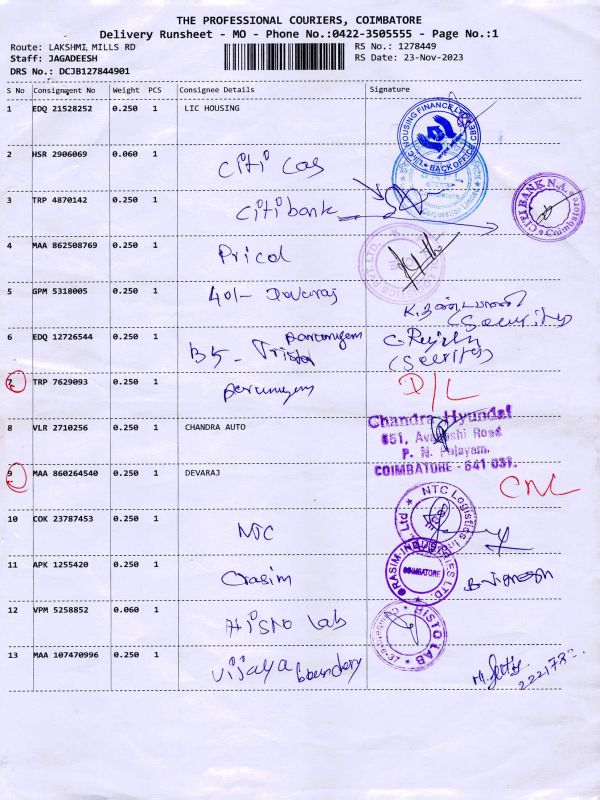 THE PROFESSIONAL COURIERS, COIMBATORE
Delivery Runsheet - MO - Phone No.:0422-3505555 - Page No.:1
Route: LAKSHMI MILLS RD RS No.: 1278449
Staff: JAGADEESH RS Date: 23-Nov-2023
DRS No.: DCJB127844901
S No Consignment No Weight PCS Consignee Details Signature
1 EDQ 21528252 0.250 1 LIC HOUSING
LIC HOUSING FINANCE LTD BACK OFFICE CBE
2 HSR 2906069 0.060 1 Citi Cas
Corporation Limited
3 TRP 4870142 0.250 1 Citibank
CITIBANK N.A. Coimbatore
4 MAA 862508769 0.250 1 Pricol
5 GPM 5318005 0.250 1 401- Devaraj
(Security)
6 EDQ 12726544 0.250 1 B5- Trista
(Security)
7 TRP 7629093 0.250 1 D/L
8 VLR 2710256 0.250 1 CHANDRA AUTO
Chandra Hyundai
651, Avanashi Road
P. N. Palayam,
COIMBATORE - 641 037.
9 MAA 860264540 0.250 1 DEVARAJ CNL
10 COK 23787453 0.250 1 NTC
NTC Logistics Ltd
11 APK 1255420 0.250 1 Grasim
GRASIM INDUSTRIES LTD. COIMBATORE
12 VPM 5258852 0.060 1 Histo Lab
HISTO LAB
13 MAA 107470996 0.250 1 Vijaya boundery